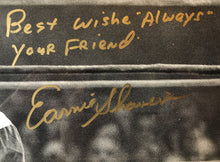 Best wishe "Always"
Your Friend
Earnie Shavers